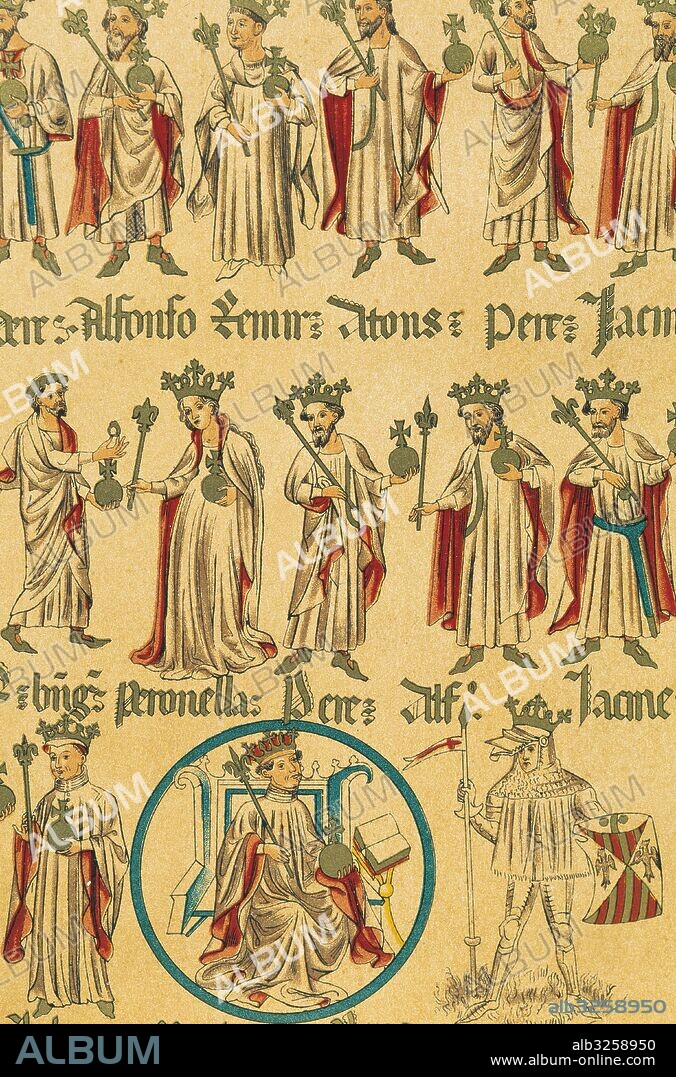 Pere: Alfonso Remir: Atons: Pere: Jacm
bng: Peronella: Pere: Alf: Jacme
ALBUM
alb3258950
ALBUM
alb3258950
www.album-online.com